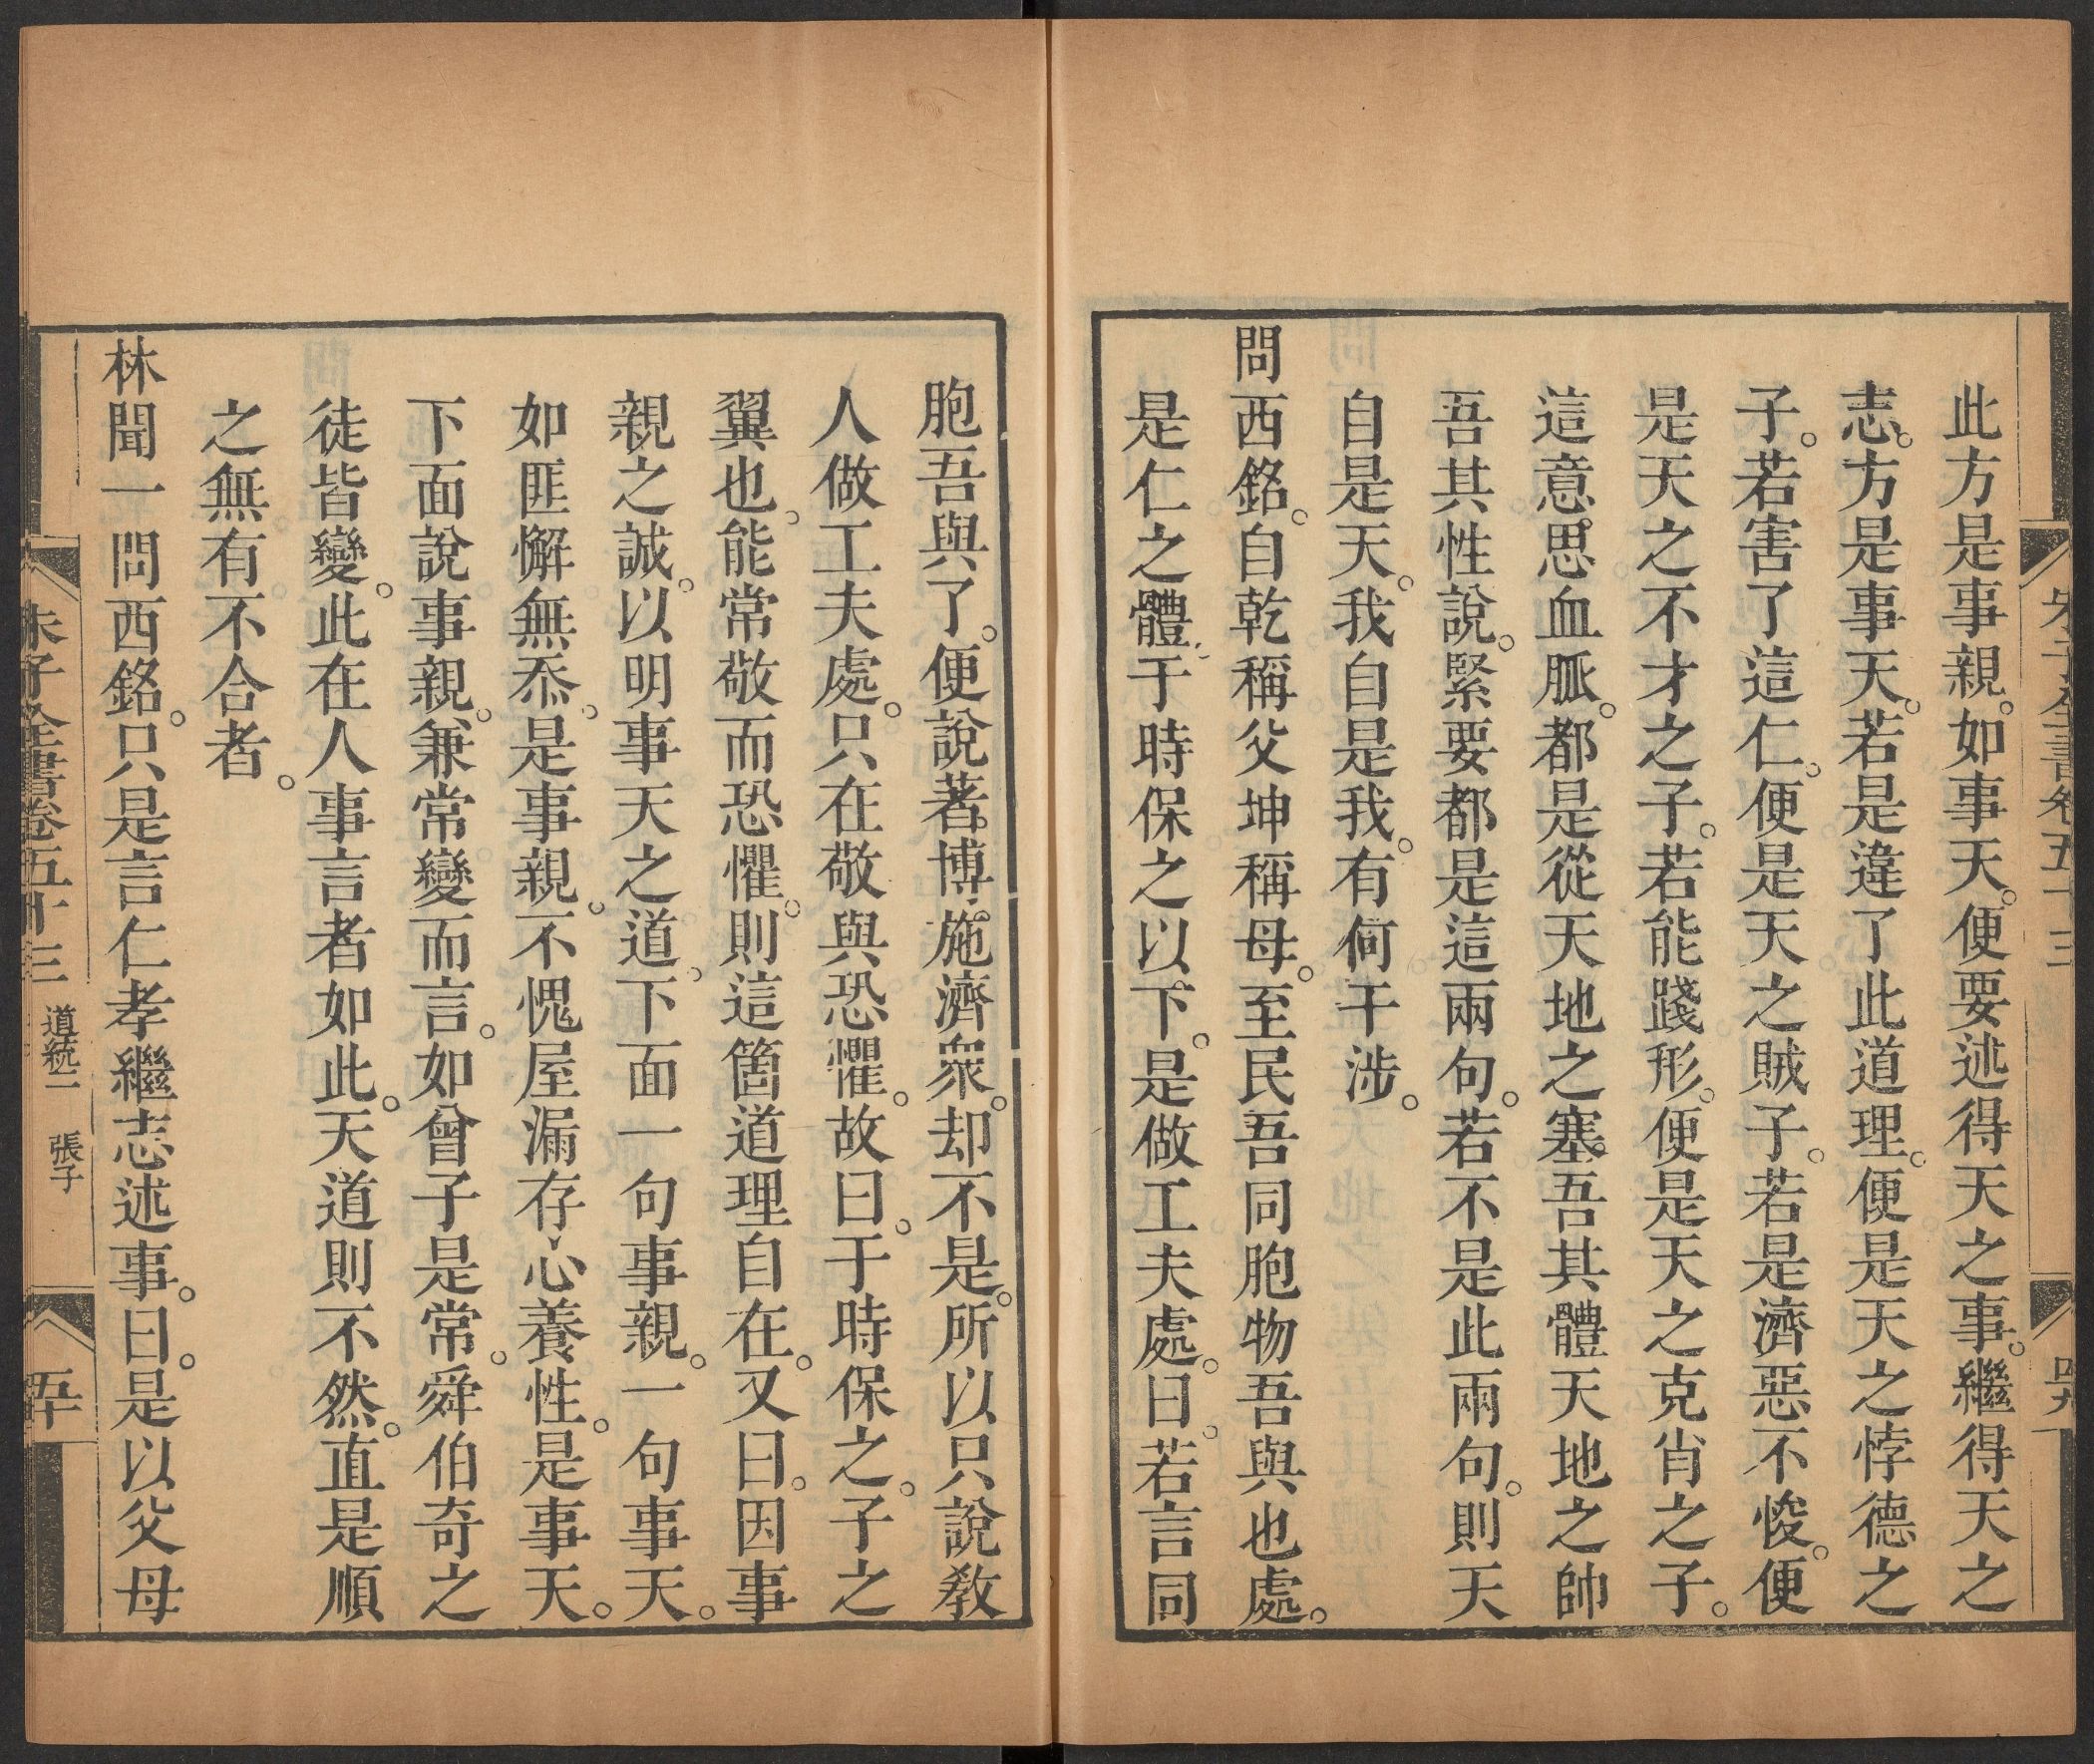 朱子全書卷五十三
此方是事親。如事天。便要述得天之事。繼得天之
志。方是事天。若是違了此道理。便是天之悖德之
子。若害了這仁。便是天之賊子。若是濟惡不悛。便
是天之不才之子。若能踐形。便是天之克肖之子。
這意思血脈。都是從天地之塞。吾其體天地之帥
吾其性說。緊要都是這兩句。若不是此兩句。則天
自是天。我自是我。有何干涉。
問西銘。自乾稱父坤稱母。至民吾同胞物吾與也處。
是仁之體、于時保之以下。是做工夫處。曰。若言同
胞吾與了。便說著博施濟衆。却不是。所以只說敎
人做工夫處。只在敬與恐懼。故曰。于時保之。子之
翼也。能常敬而恐懼。則這箇道理自在。又曰。因事
親之誠。以明事天之道。下面一句事親。一句事天。
如匪懈無忝。是事親。不愧屋漏存心養性。是事天。
下面說事親。兼常變而言。如曾子是常。舜伯奇之
徒皆變。此在人事言者如此。天道則不然。直是順
之無有不合者。
林聞一問西銘。只是言仁孝繼志述事。曰。是以父母
朱子全書卷五十三 道統二 張子 五十